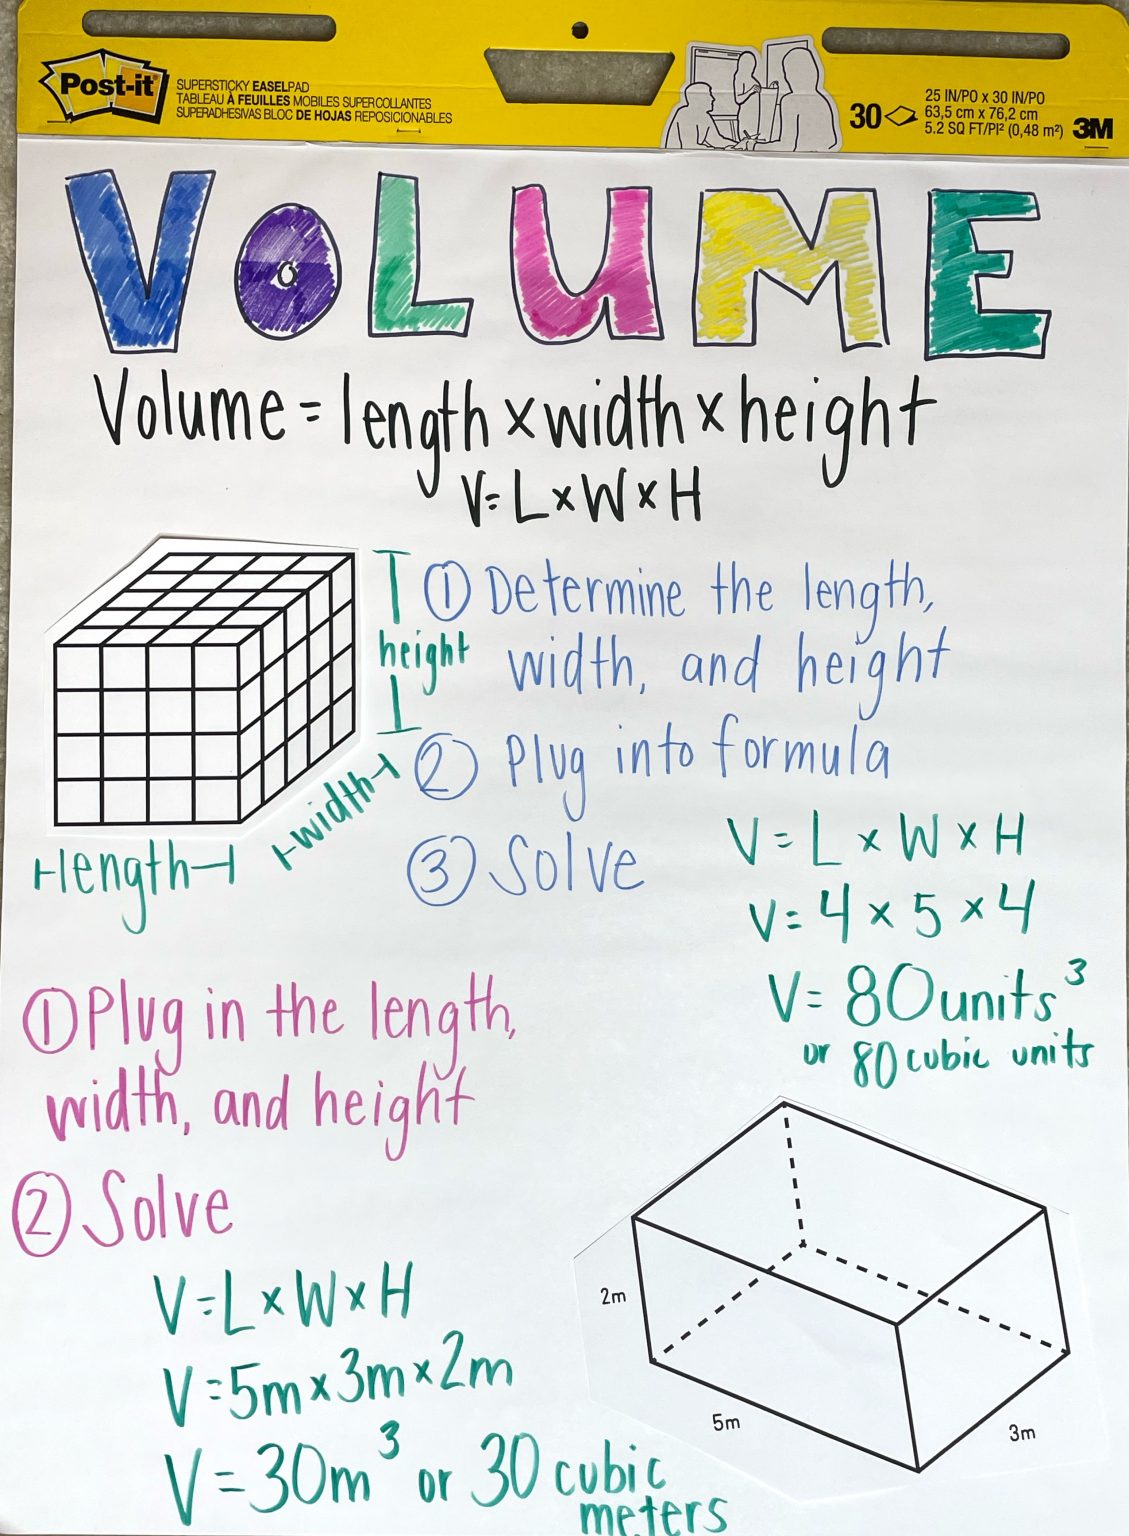 Post-it
SUPERSTICKY EASELPAD
TABLEAU À FEUILLES MOBILES SUPERCOLLANTES
SUPERADHESIVAS BLOC DE HOJAS REPOSICIONABLES
30
25 IN/PO x 30 IN/PO
63,5 cm x 76,2 cm
5.2 SQ FT/PI² (0,48 m²)
3M
VOLUME
Volume = length x width x height
V= L x W x H
height
length
width
① Determine the length,
width, and height
② Plug into formula
③ Solve
V = L x W x H
V = 4 x 5 x 4
V = 80 units³
or 80 cubic units
① Plug in the length,
width, and height
② Solve
V = L x W x H
V = 5m x 3m x 2m
V = 30m³ or 30 cubic
meters
2m
5m
3m